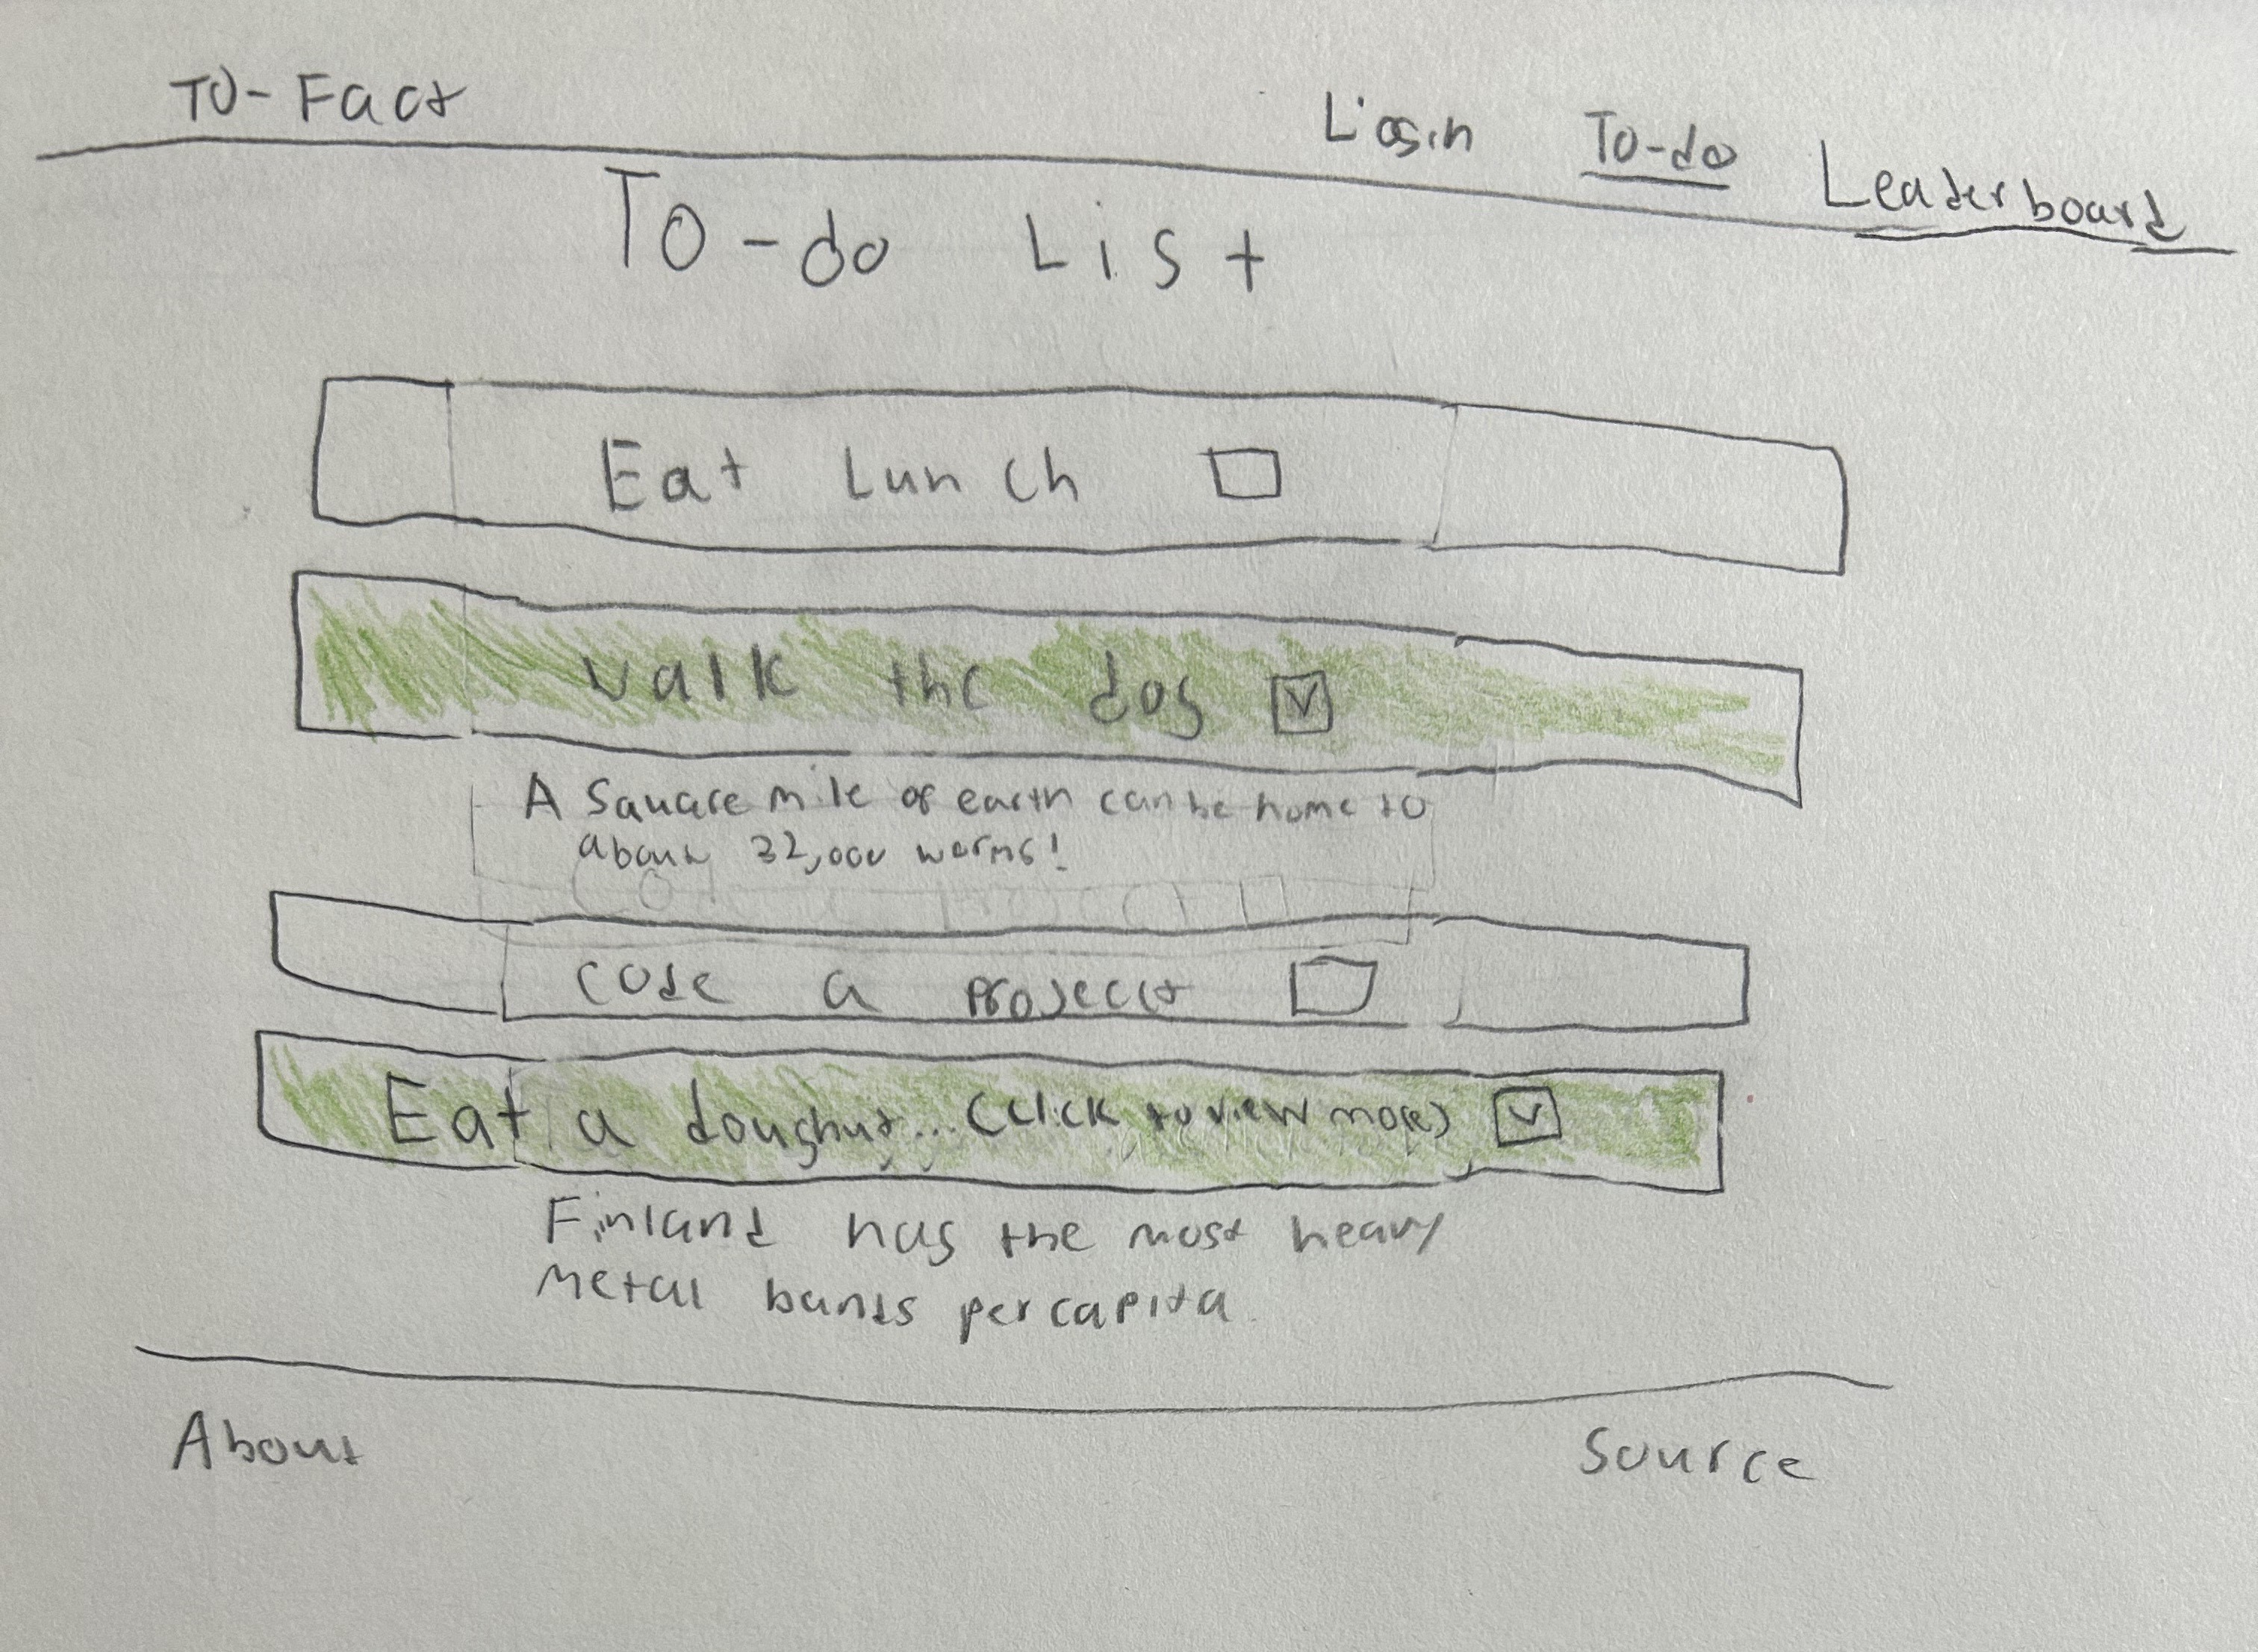 To-Fact
Login To-do Leaderboard
To-do List
Eat Lunch
Walk the dog
A Square mile of earth can be home to
about 32,000 worms!
Code a project
Eat a doughnut... (click to view more)
Finland has the most heavy
metal bands per capita.
About Source